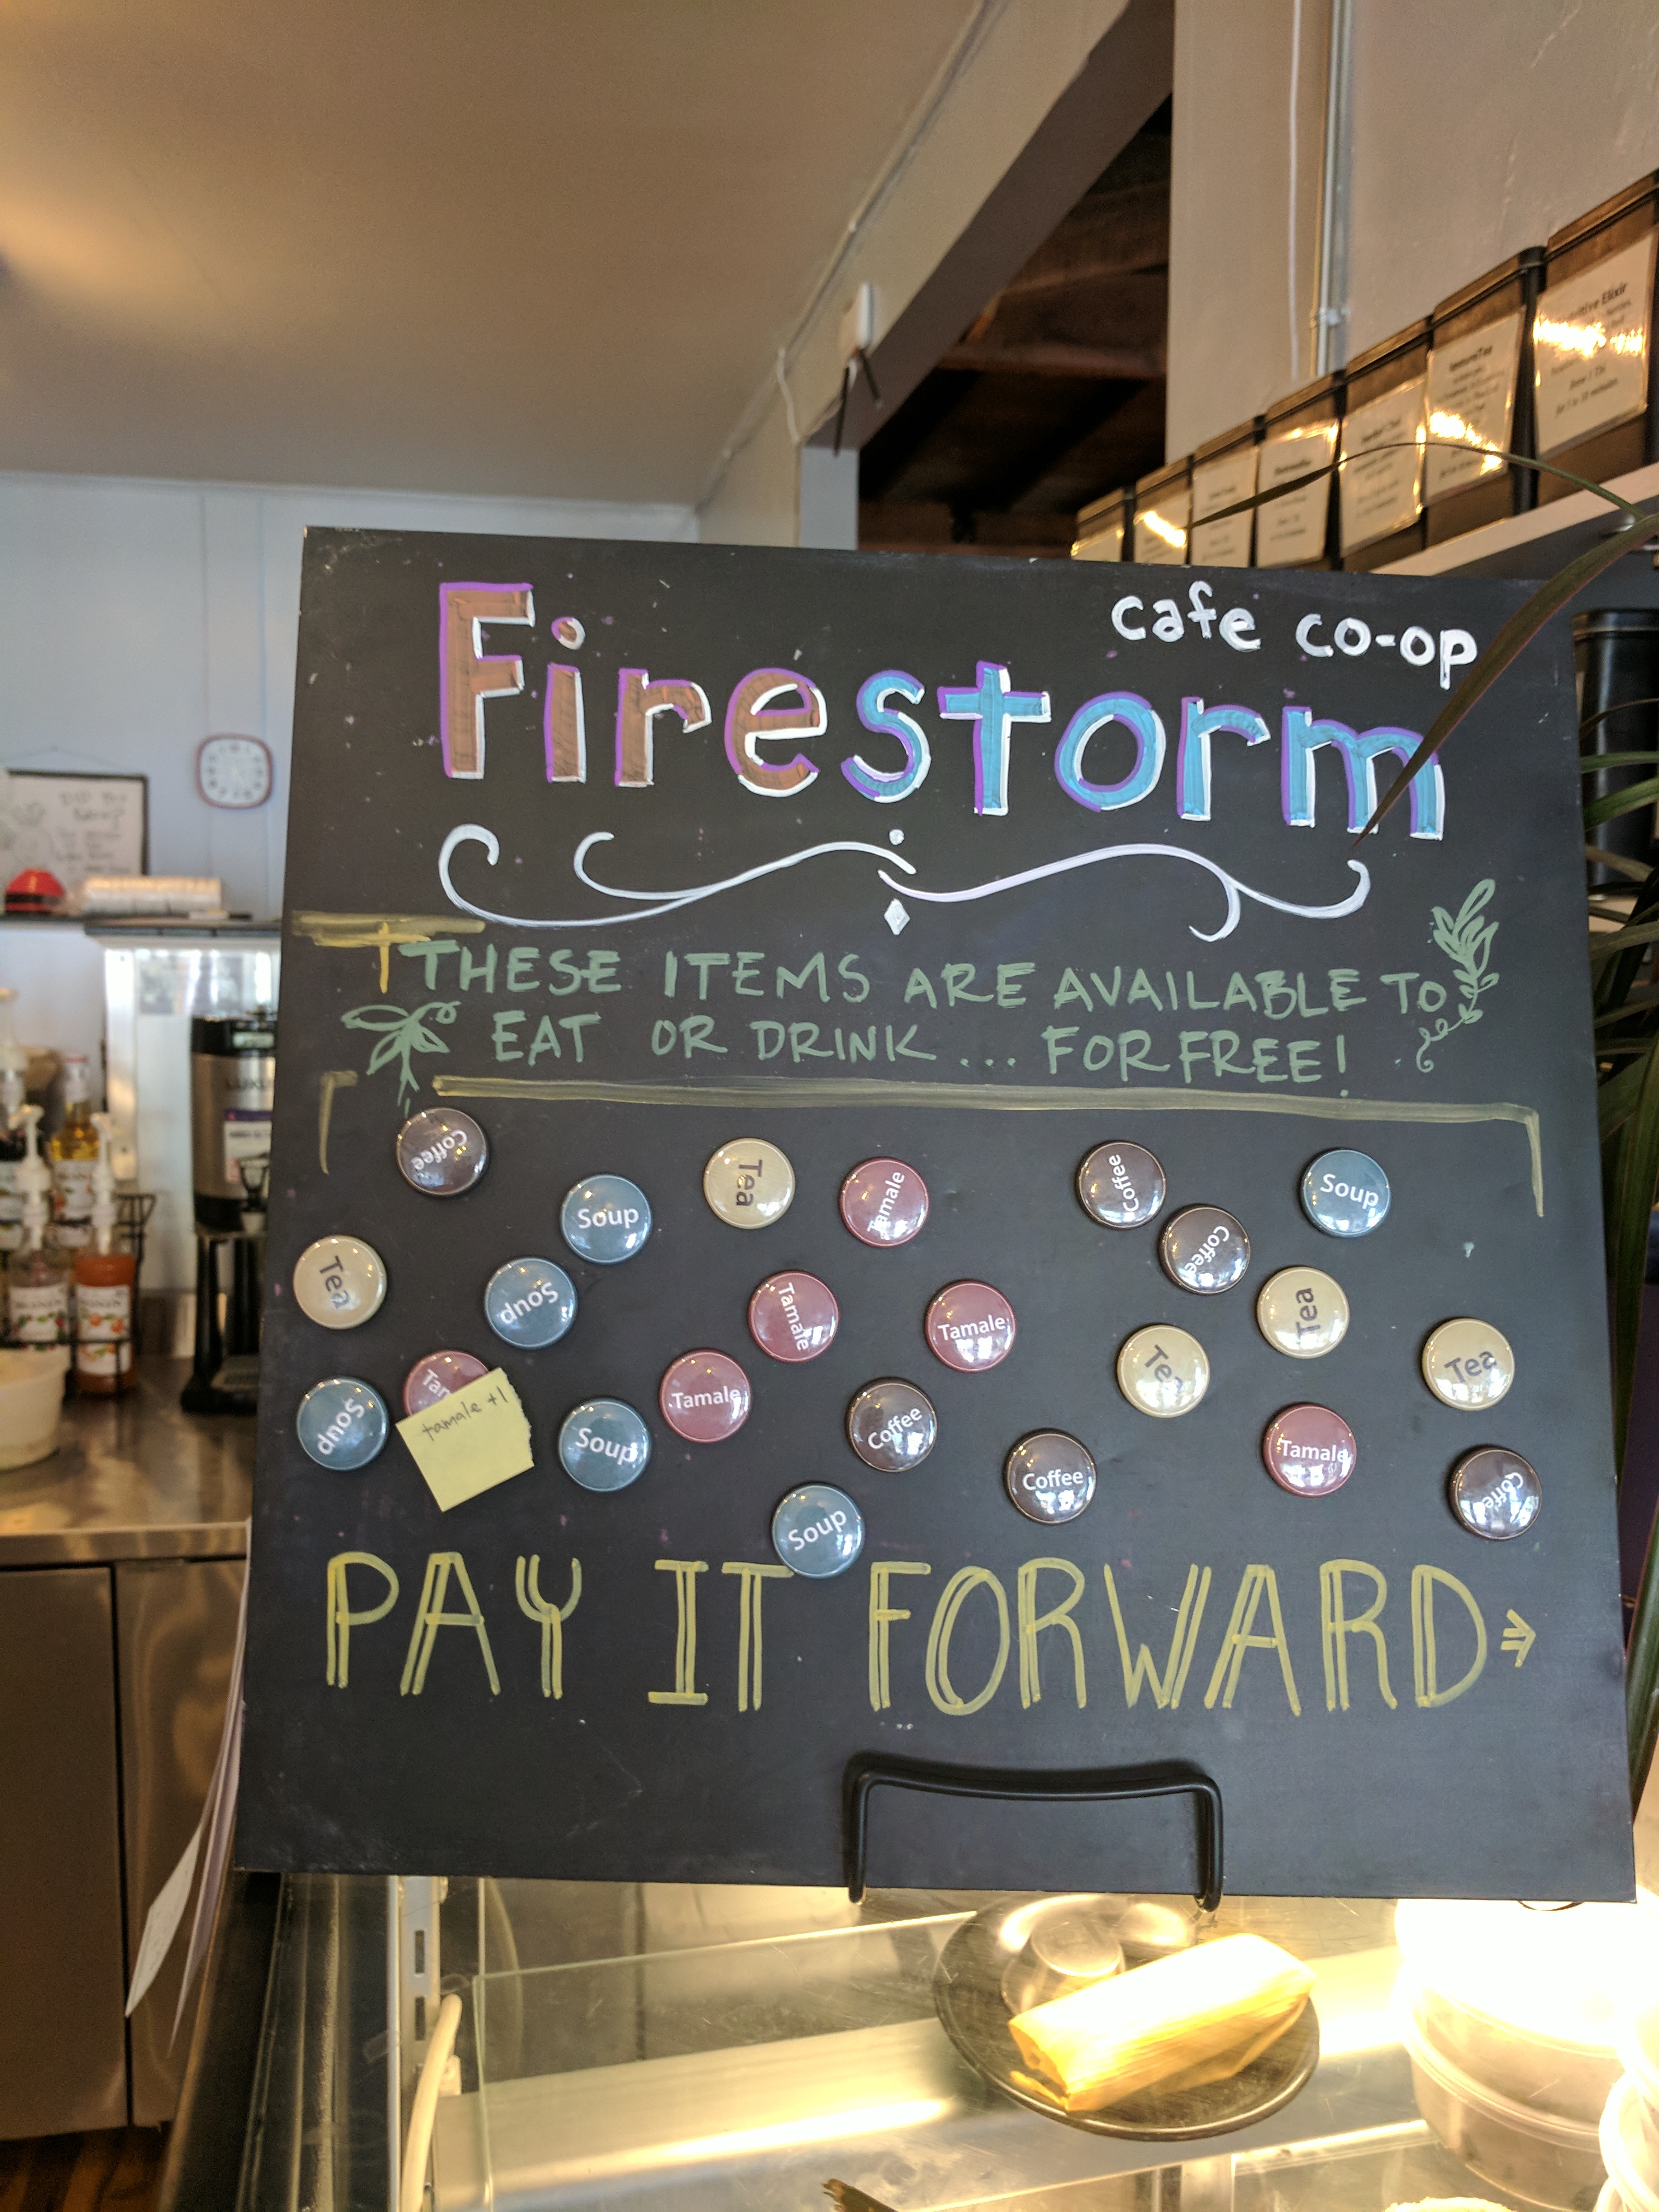 cafe co-op
Firestorm
THESE ITEMS ARE AVAILABLE TO
EAT OR DRINK... FOR FREE!
Coffee
Tea
Tamale
Coffee
Soup
Soup
Coffee
Tea
Soup
Tamale
Tamale
Tea
Tea
Tea
Tam
tamale +1
Soup
Soup
Tamale
Coffee
Coffee
Tamale
Coffee
Soup
PAY IT FORWARD